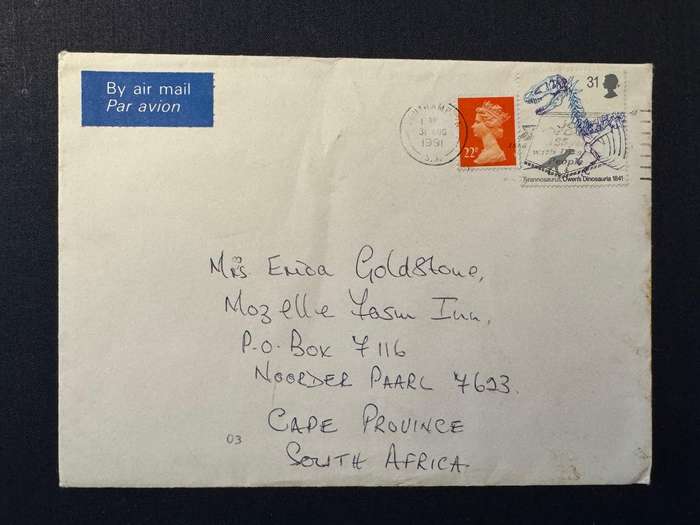 By air mail
Par avion
31 AUG
1991
22P
31
Tyrannosaurus, Owen's Dinosauria 1841
Mrs Erica Goldstone,
Mozelle Inn,
P.O. Box 7116
NOORDER PAARL 7623.
CAPE PROVINCE
SOUTH AFRICA
03